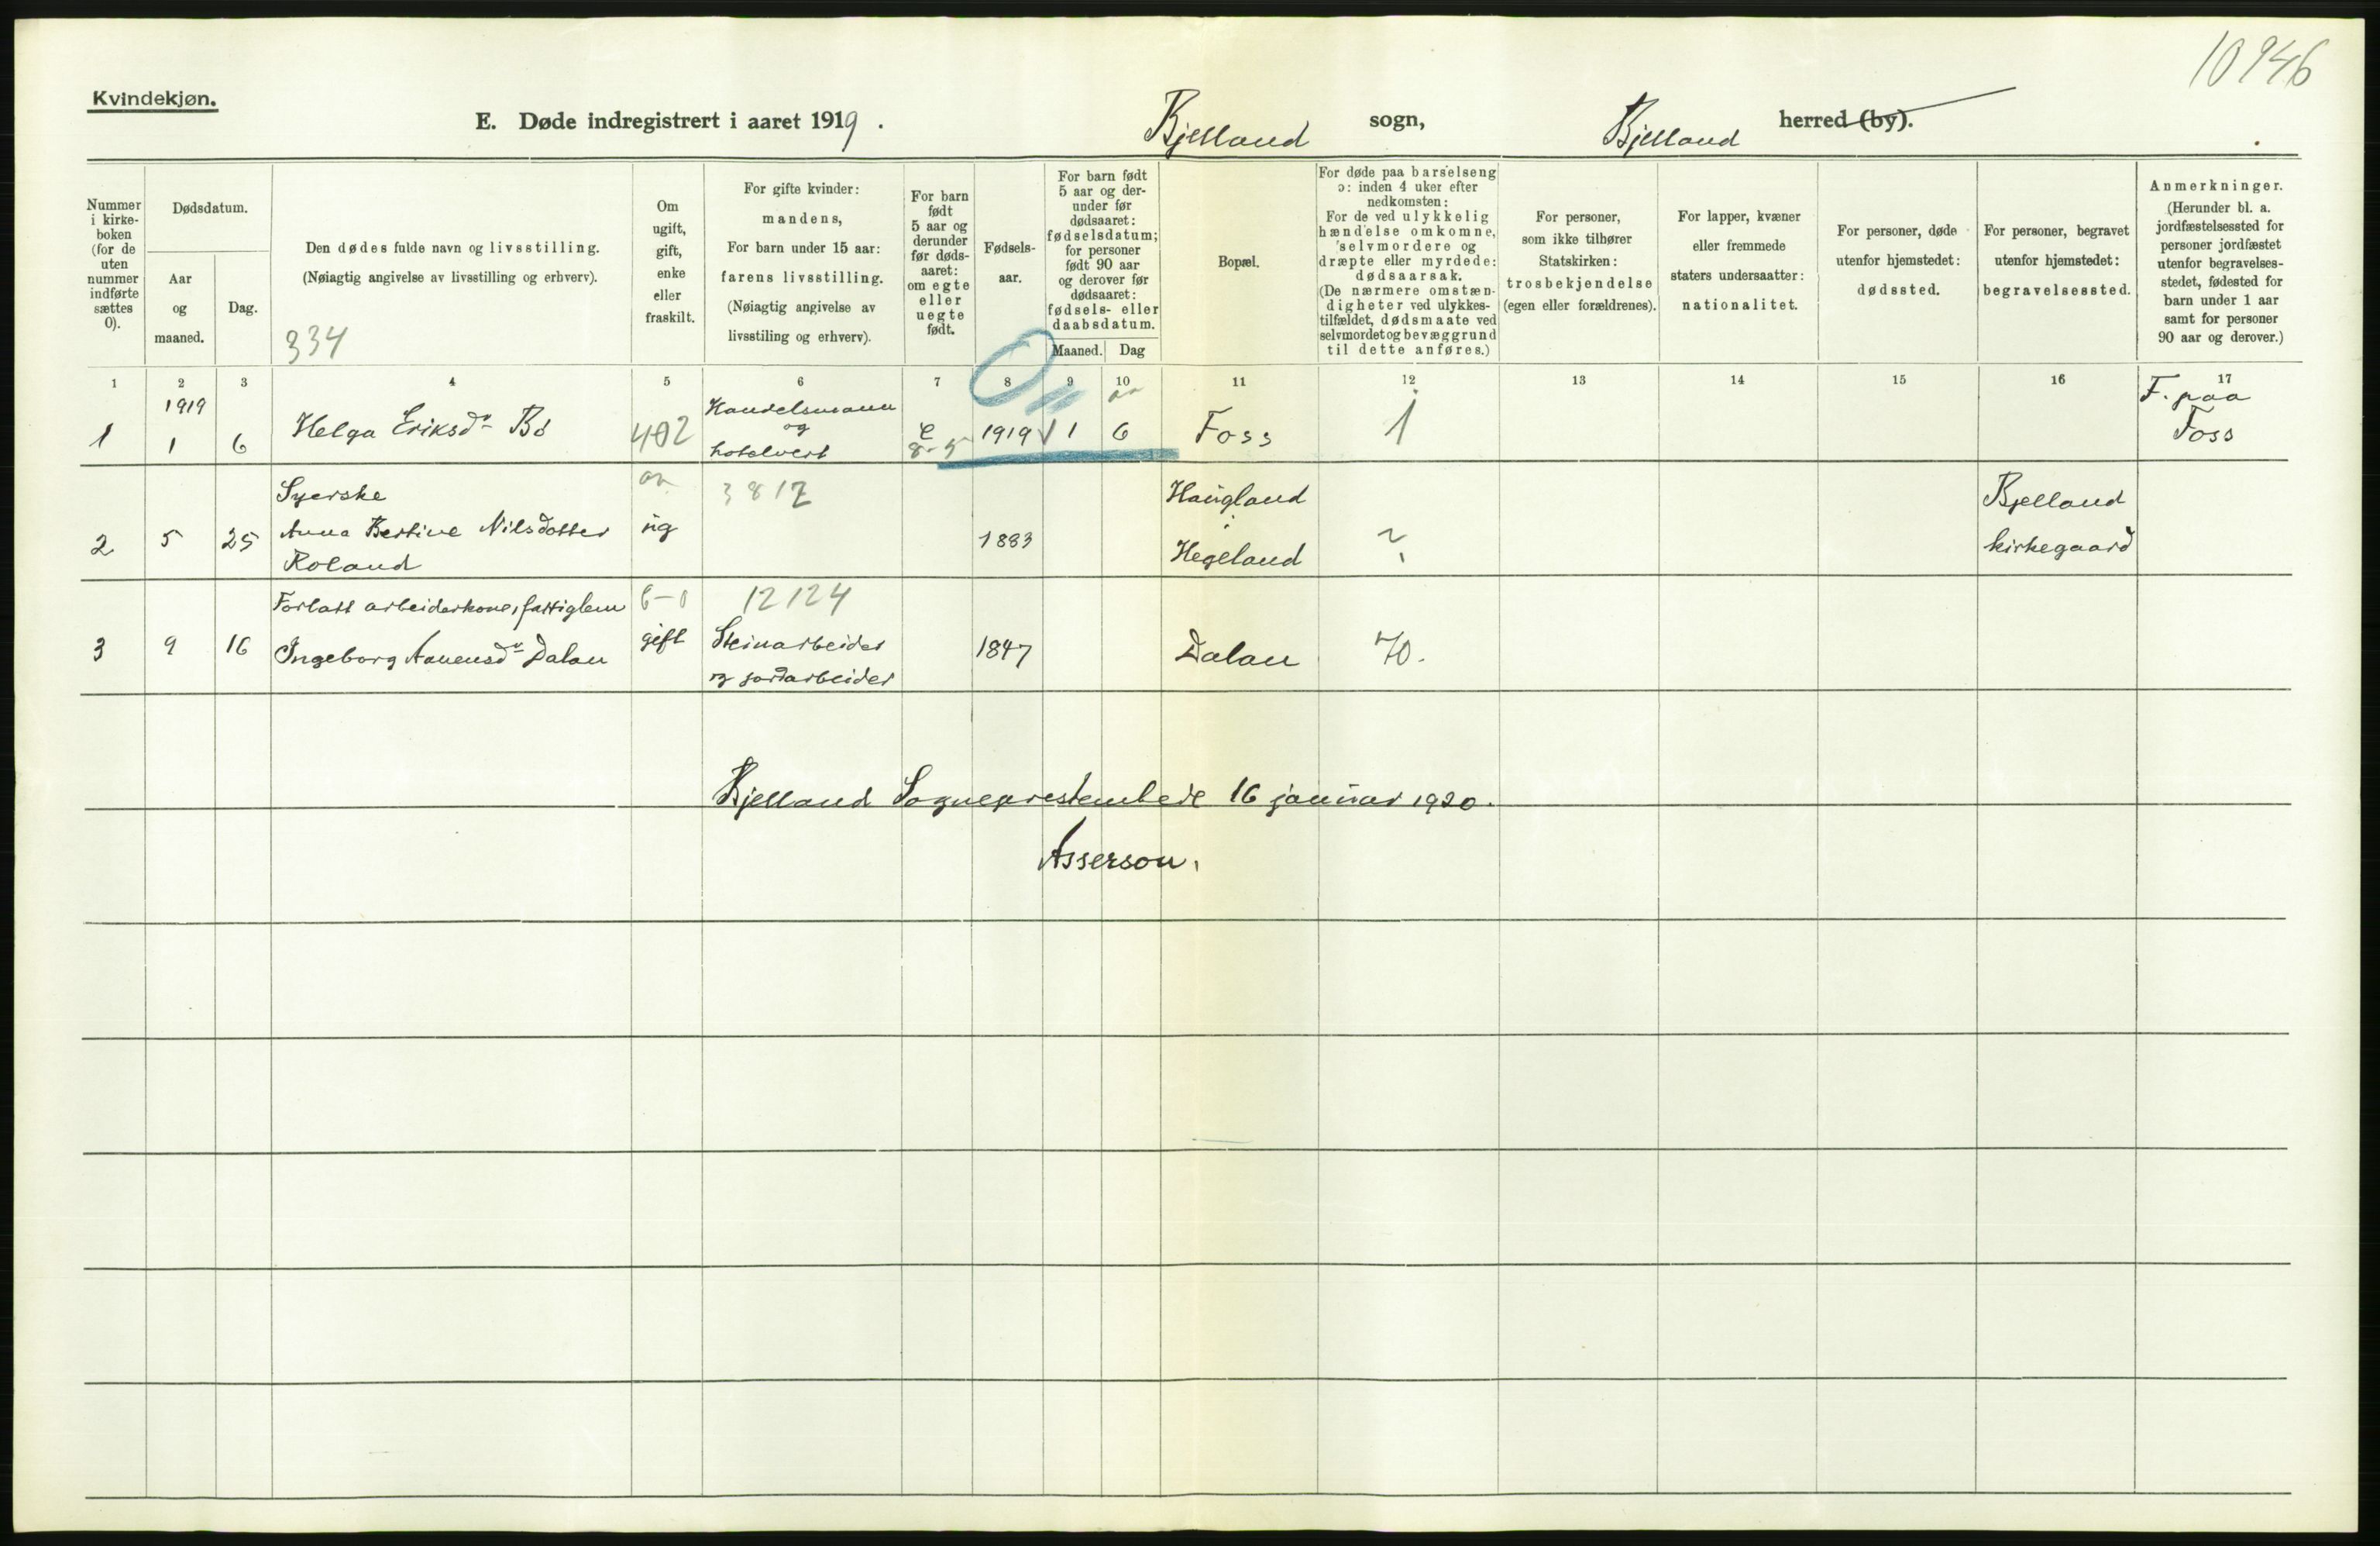 10946
Kvindekjøn.
E. Døde indregistrert i aaret 1919. Bjelland sogn, Bjelland herred (by).
Nummer i kirke- boken (for de uten nummer indførte sættes 0).
Dødsdatum.
Aar og maaned.
Dag.
Den dødes fulde navn og livsstilling.
(Nøiagtig angivelse av livsstilling og erhverv).
334
Om ugift, gift, enke eller fraskilt.
For gifte kvinder:
mandens,
For barn under 15 aar:
farens livsstilling.
(Nøiagtig angivelse av
livsstiling og erhverv).
For barn født 5 aar og derunder før døds- aaret: om egte eller uegte født.
Fødsels- aar.
For barn født 5 aar og der- under før dødsaaret: fødselsdatum; for personer født 90 aar og derover før dødsaaret: fødsels- eller daabsdatum.
Maaned. Dag
Bopæl.
For døde paa barselseng
ɔ: inden 4 uker efter
nedkomsten:
For de ved ulykkelig
hændelse omkomne,
selvmordere og
dræpte eller myrdede:
dødsaarsak.
(De nærmere omstæn-
digheter ved ulykkes-
tilfældet, dødsmaate ved
selvmordet og bevæggrund
til dette anføres.)
For personer,
som ikke tilhører
Statskirken:
trosbekjendelse
(egen eller forældrenes).
For lapper, kvæner
eller fremmede
staters undersaatter:
nationalitet.
For personer, døde
utenfor hjemstedet:
dødssted.
For personer, begravet
utenfor hjemstedet:
begravelsessted.
Anmerkninger.
(Herunder bl. a.
jordfæstelsessted for
personer jordfæstet
utenfor begravelses-
stedet, fødested for
barn under 1 aar
samt for personer
90 aar og derover.)
1 2 3 4 5 6 7 8 9 10 11 12 13 14 15 16 17
1919
1 1 6 Helga Eriksdr Bö 402
Handelsmann
og
hotelvert
e
8-5
1919 1 6 Foss 1
F. paa
Foss
2 5 25
Syerske
Anna Bertine Nilsdotter
Roland
ug
3812
1883
Haugland
i
Hegeland
?
Bjelland
kirkegaard
3 9 16
Forlatt arbeiderkone, fattiglem
Ingeborg Aanensdr Dalan
6-0
gift
12124
Steinarbeider
og jordarbeider
1847 Dalan 70.
Bjelland Sogneprestembede 16 januar 1920.
Asserson.